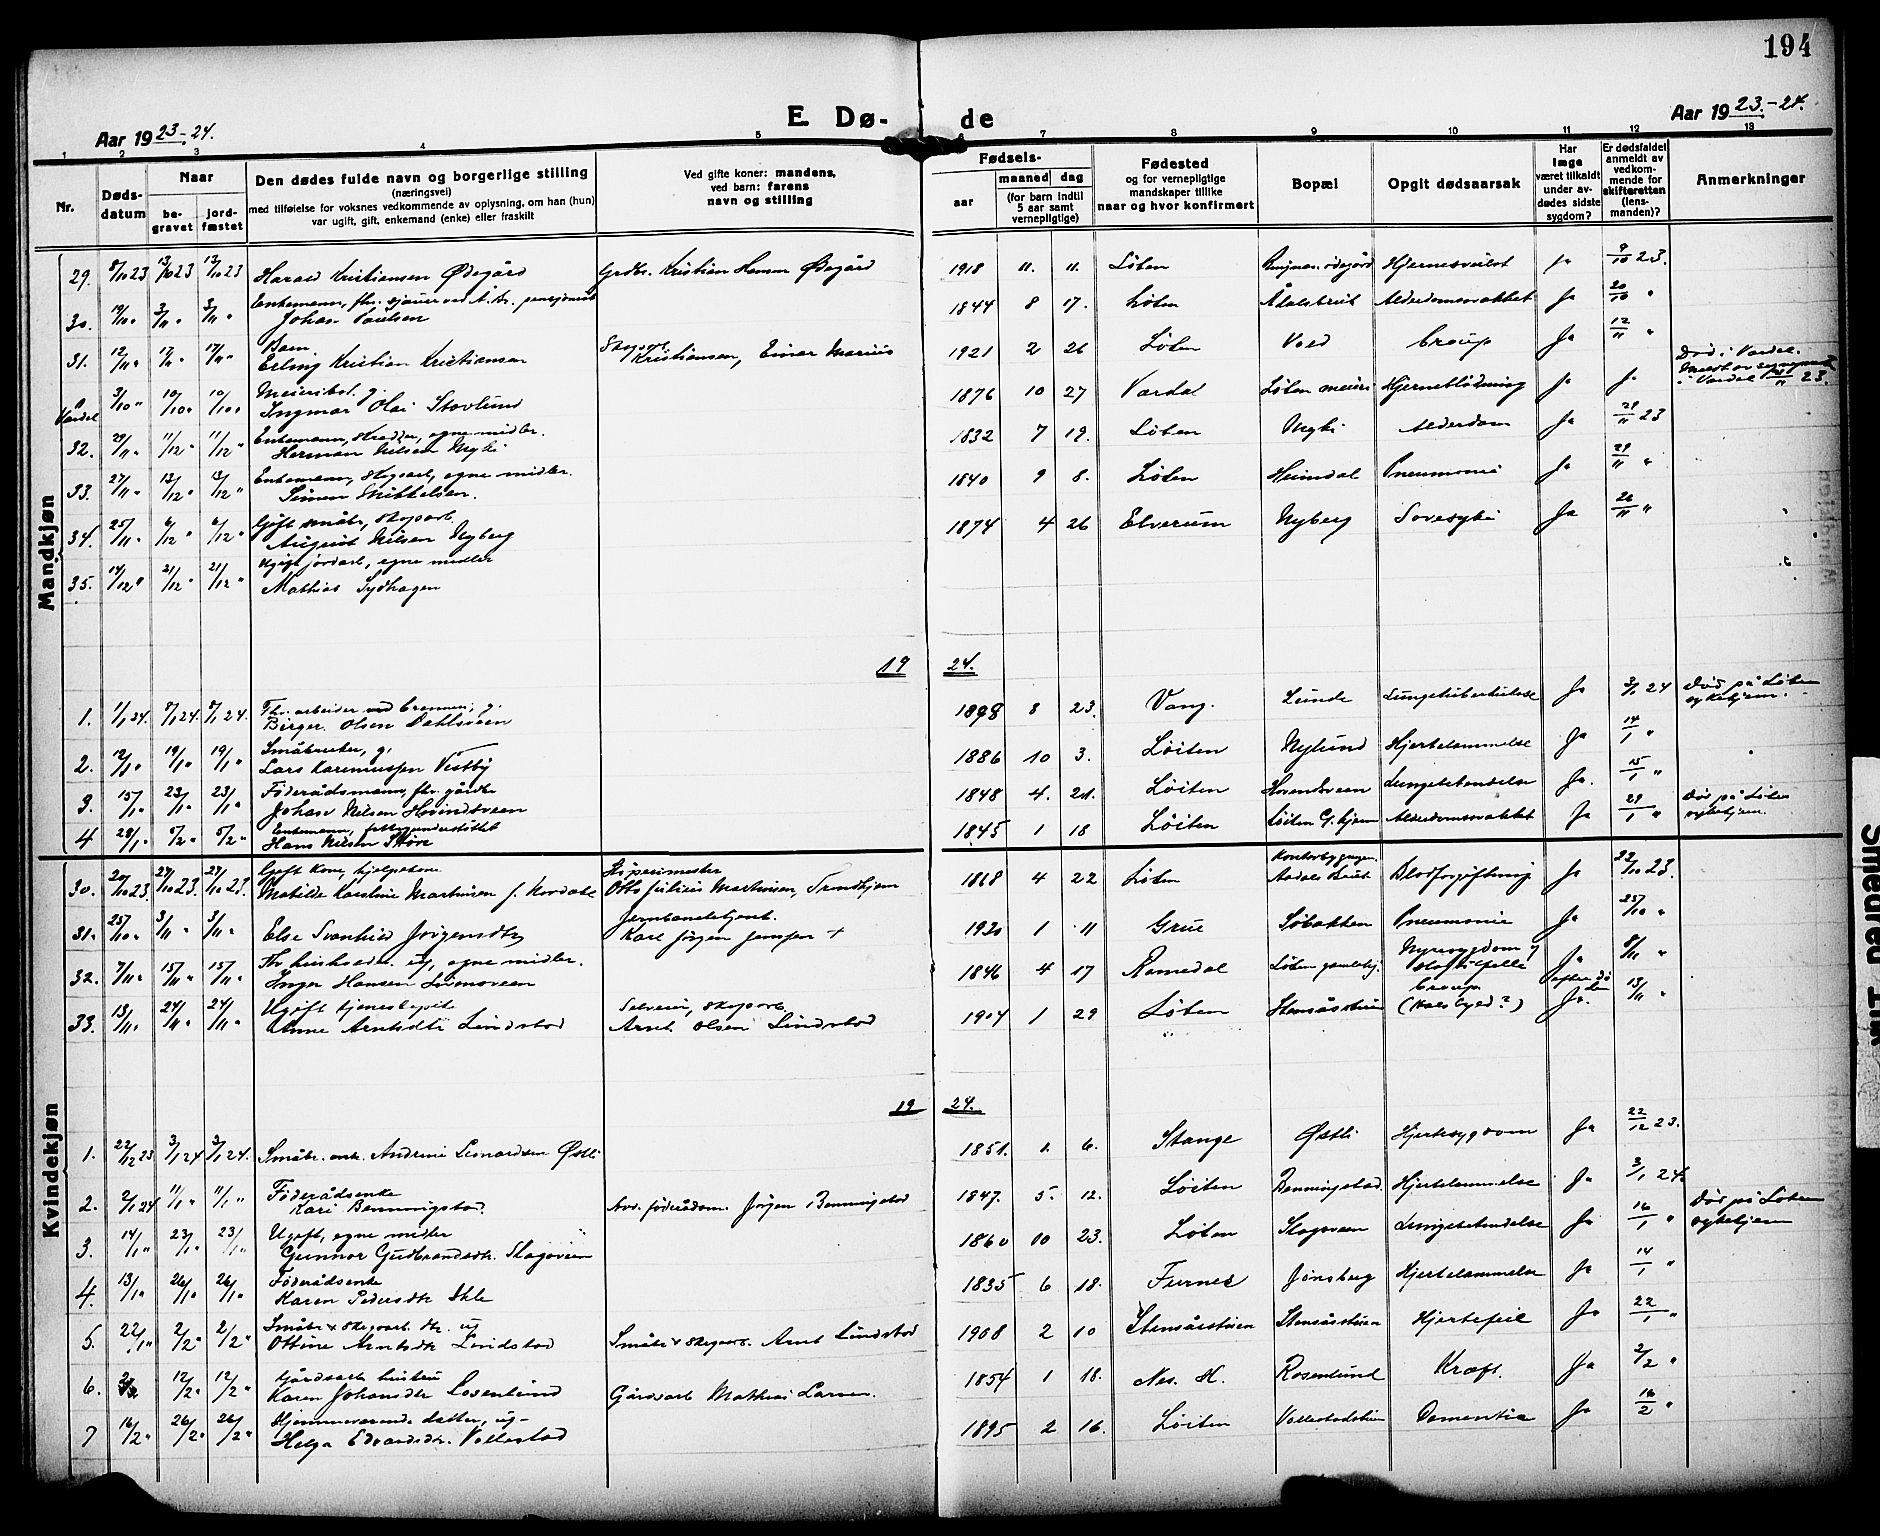 194
E. Dø- de
Aar 1923-24.
Aar 1923-24.
1 2 3 4 5 6 7 8 9 10 11 12 13
Nr.
Døds-
datum
Naar
be-
gravet
jord-
fæstet
Den dødes fulde navn og borgerlige stilling
(næringsvei)
med tilføielse for voksnes vedkommende av oplysning, om han (hun)
var ugift, gift, enkemand (enke) eller fraskilt
Ved gifte koner: mandens,
ved barn: farens
navn og stilling
Fødsels-
aar
maaned dag
(for barn indtil
5 aar samt
vernepligtige)
Fødested
og for vernepligtige
mandskaper tillike
naar og hvor konfirmert
Bopæl
Opgit dødsaarsak
Har
læge
været tilkaldt
under av-
dødes sidste
sygdom?
Er dødsfaldet
anmeldt av
vedkom-
mende for
skifteretten
(lens-
manden)?
Anmerkninger
Mandkjøn
29. 8/10 23 13/10 23 13/10 23 Harald Kristiansen Ødegård Grdbr. Kristian Ødegård 1918 11. 11. Løten Ja 9/10 23.
Enkemann, pensjonist
30. 19/10 " 3/11 " 3/11 " Johan Paulsen 1844 8 17. Løten Ådalsbruk Alderdomssvakhet Ja 20/10 "
Barn
31. 12/11 " 17/11 " 17/11 " Erling Kristian Kristiansen Skogsarb. Kristiansen, Einar Marius 1921 2 26 Løten Vold Croup Ja 12/11 "
Død i Vardal.
Meieribest. g.
Vardal 3/10 " 10/10 " 10/10 " Ingmar Olai Stovlund 1876 10 27 Vardal Løten meieri Hjerneblødning Ja Ja i Vardal 23.
Enkemann, skredder, egne midler.
32. 29/11 " 11/12 " 11/12 " Herman Nilsen Nybi 1832 7 19. Løten Nybi Alderdom Ja 29/11 23
Enkemann, skogsarb., egne midler.
33. 27/11 " 13/12 " 13/12 " Simen Mikkelsen. 1840 9 8. Løten Heimdal Pneumoni Ja 29/11 "
Gift småbr., skogsarb.
34. 25/11 " 6/12 " 6/12 " August Nilsen Nyberg 1874 4 26 Elverum Nyberg Sovesyke Ja 26/11 "
Ugift jordarb., egne midler
35. 14/12 " 21/12 " 21/12 " Mathias Sydhagen
19 24.
Fhv. arbeider ved brenneri, g.
1. 1/1 24. 8/1 24. 8/1 24. Birger Olsen Dahlsveen 1898 8 23. Vang. Lunde Lungetuberkulose Ja 3/1 24 Død på Løten
sykehjem.
Småbruker, g.
2. 12/1 " 19/1 " 19/1 " Lars Karenussen Vestby 1886 10 3. Løiten Nylund Hjertelammelse Ja 14/1 "
Føderådsmann, fhv. gårdbr.
3. 15/1 " 23/1 " 23/1 " Johan Nilsen Hovindsveen 1848 4. 21. Løiten Hovindsveen Lungebetendelse Ja. 15/1 "
Enkemann, fattigunderstøttet
4 28/1 " 5/2 " 5/2 " Hans Nilsen Støre 1845 1 18 Løiten Løiten G.hjem Alderdomssvakhet Ja 29/1 " Død på Løten
sykehjem.
Kvindekjøn
Gift kone, Støperimester
30. 20/10 23 27/10 23. 27/10 23 Matilde Karoline Martinsen f. Nordahl Otto Julius Martinsen, Trondhjem 1868 4 22 Løten Aadals Bruk Blodforgiftning Ja 22/10 23.
Jernbanebetjent.
31. 25/10 " 3/11 " 3/11 " Else Svanhild Jørgensdtr Karl Jørgen Jensen + 1920 1 11 Grue Søbakken Pneumonie Ja 25/10 "
Fhv. husholder. ug, egne midler.
32. 7/11 " 15/11 " 15/11 " Inger Hansen Simensveen 1846 4 17 Romedal Løten gamlehj. Nyresygdom Ja 8/11 "
Ugift tjenestepike Selveier, skogsarb.
33. 13/11 " 24/11 " 24/11 " Anne Arntsdtr Lindstad Arnt Olsen Lindstad 1904 1 29 Løten Stensåsstuen Croup (Halsbyld?) Ja. 13/11 "
19 24.
1. 22/12 23 3/1 24 3/1 24. Småbr. enk. Andrine Leonardsen Østli 1851. 1. 6. Stange Østli Hjertesygdom Ja 22/12 23.
Føderådsenke
2. 2/1 24 11/1 " 11/1 " Kari Benningstad. Avd. føderådsm. Jørgen Benningstad 1847. 5. 12. Løiten Benningstad. Hjertelammelse Ja 3/1 24.
Ugift, egne midler Død på Løten
3. 14/1 " 23/1 " 23/1 " Gunnor Gudbrandsdtr. Skogsveen 1860 10 23. Løten Skogsveen Lungebetendelse Ja 16/1 " sykehjem
Føderådsenke
4. 13/1 " 26/1 " 26/1 " Karen Pedersdtr Skle 1835 6 18. Furnes Jønsberg Hjertelammelse Ja 14/1 "
Småbr. & skogsarb. dtr. ug
5. 22/1 " 2/2 " 2/2 " Ottine Arntsdtr Lindstad Småbr & skogsarb. Arnt Lindstad 1908 2 10 Stensåsstuen Stensåsstuen Hjertefeil Ja 22/1 "
Gårdsarb. hustru
6. 12/2 " 12/2 " Karen Johansdtr Rosenlund Gårdsarb Mathias Larsen. 1854 1 18. Nes. H. Rosenlund Kræft. Ja 2/2 "
Hjemmeværende datter, ug-
7 16/2 " 26/2 " 26/2 " Helga Edvardsdtr. Vollestad 1895 2 16. Løiten Vollestadstuen Dementia Ja 16/2 "